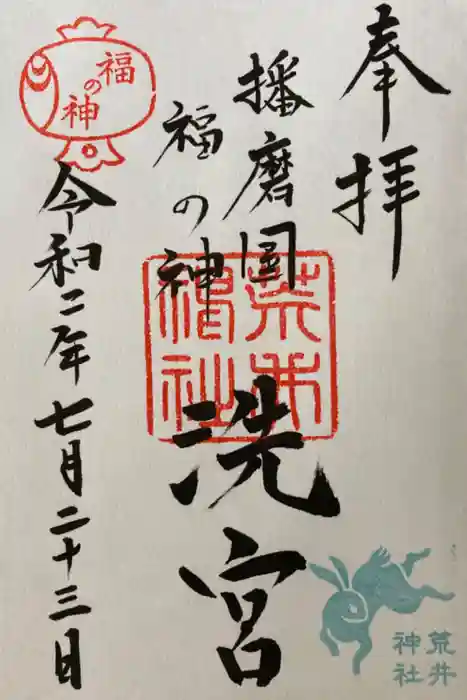 奉拝
播磨圀
福の神
洗宮
令和二年七月二十三日
福の神
荒井神社
荒井
神社